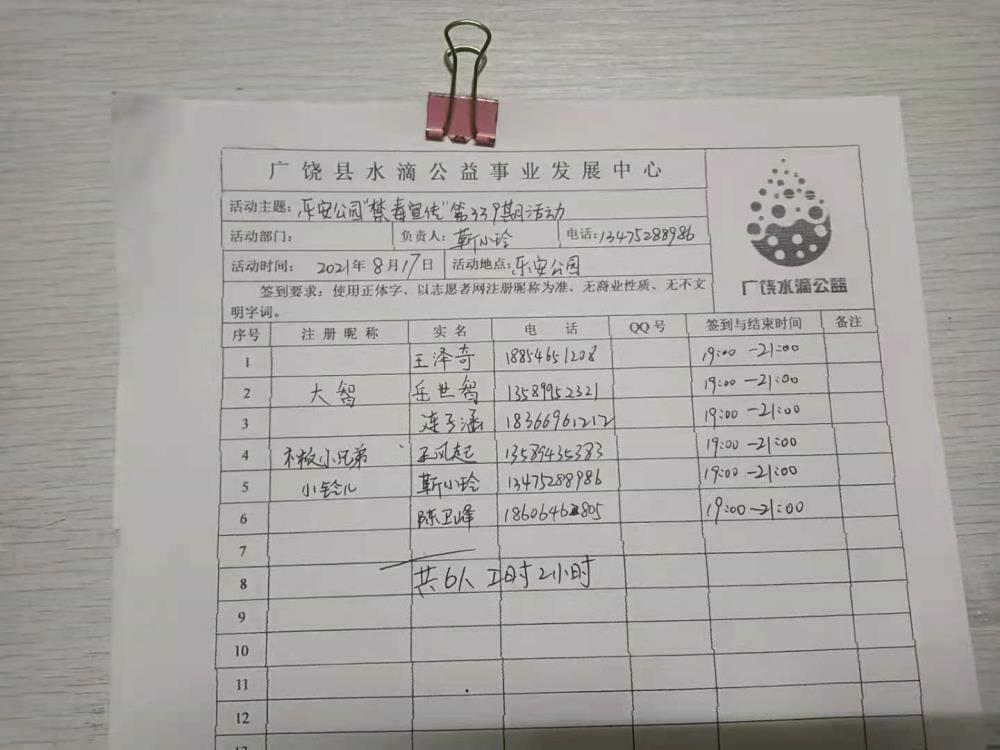 广饶县水滴公益事业发展中心
活动主题：乐安公园"禁毒宣传"第339期活动
活动部门： 负责人：靳小玲 电话：13475288986
活动时间： 2021年8月17日 活动地点：乐安公园
广饶水滴公益
签到要求：使用正体字，以志愿者网注册昵称为准、无商业性质、无不文
明字词。
序号 注册昵称 实名 电话 QQ号 签到与结束时间 备注
1 王泽奇 18854651208 19:00-21:00
2 大智 岳世智 13589952321 19:00-21:00
3 连子涵 18366961212 19:00-21:00
4 小兄弟 13589435383 19:00-21:00
5 小铃儿 靳小玲 13475288986 19:00-21:00
6 陈卫峰 19:00-21:00
7
8 共6人 工时2小时
9
10
11
12
13